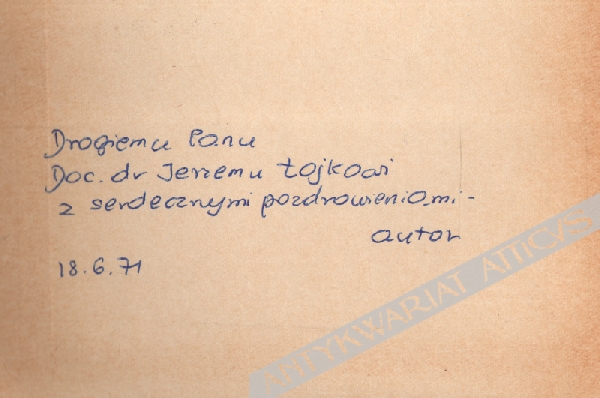 Drogiemu Panu
Doc. dr Jerzemu Łojkowi
z serdecznymi pozdrowieniami -
autor
18.6.71
ANTYKWARIAT ATTICUS